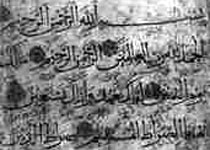 بسم الله الرحمن الرحيم
الحمد لله رب العالمين الرحمن الرحيم
يوم الدين اياك نعبد واياك نستعين
اهدنا الصراط المستقيم صراط الذين